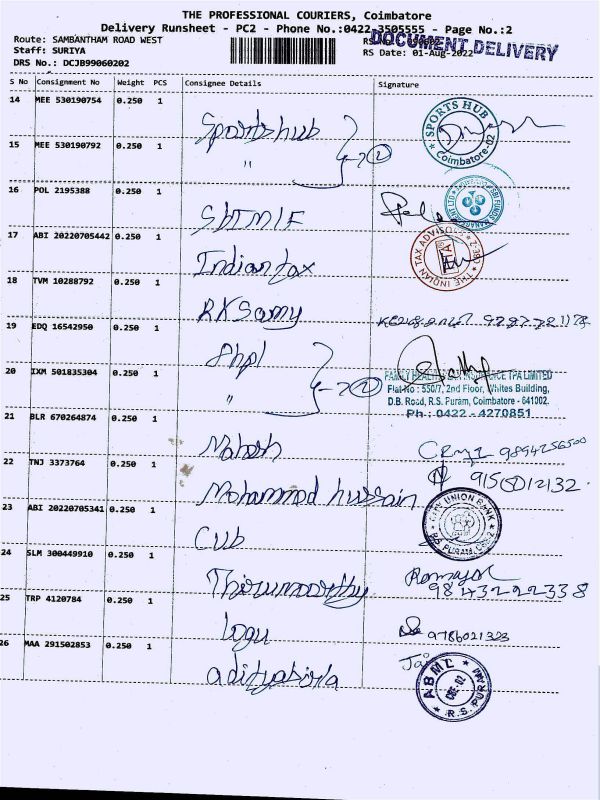 THE PROFESSIONAL COURIERS, Coimbatore
Delivery Runsheet - PC2 - Phone No.:0422 3505555 - Page No.:2
Route: SAMBANTHAM ROAD WEST
DOCUMENT DELIVERY
Staff: SURIYA
RS Date: 01-Aug-2022
DRS No.: DCJB99060202
S No Consignment No Weight PCS Consignee Details Signature
14 MEE 530190754 0.250 1 Sportshub
SPORTS HUB Coimbatore-02
15 MEE 530190792 0.250 1 " 2
16 POL 2195388 0.250 1 SBIMF
SBI FUNDS MANAGEMENT LTD
17 ABI 20220705442 0.250 1 Indian tax
THE INDIAN TAX ADVISOR
18 TVM 10288792 0.250 1 RKSamy
19 EDQ 16542950 0.250 1 Fhpl
20 IXM 501835304 0.250 1 " 2
FAMILY HEALTH PLAN INSURANCE TPA LIMITED
Flat No : 550/7, 2nd Floor, Whites Building,
D.B. Road, R.S. Puram, Coimbatore - 641002.
Ph : 0422 - 4270851
21 BLR 670264874 0.250 1 Mahesh
9894256500
22 TNJ 3373764 0.250 1 Mohammad hussain
9150012132
23 ABI 20220705341 0.250 1 CUB
CITY UNION BANK R.S. PURAM
24 SLM 300449910 0.250 1 Thirumoorthy
9843222338
25 TRP 4120784 0.250 1 Logu
9786021323
26 MAA 291502853 0.250 1 adityabirla
ABML R.S. PURAM